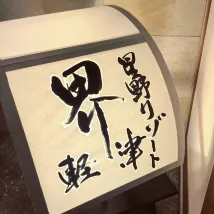 星野リゾート
界
軽津